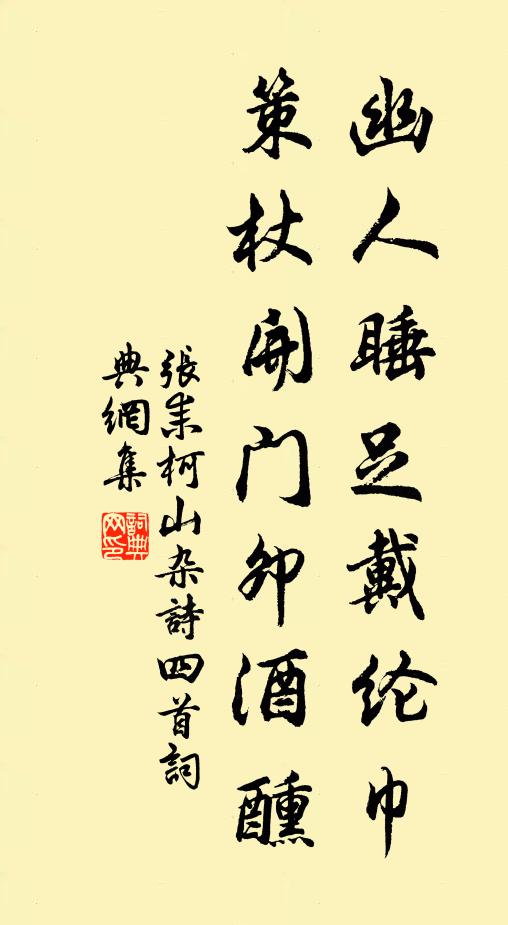 幽人睡足戴纶巾
策杖開门卯酒醺
張耒柯山杂詩四首詞
典網集
詞典网印